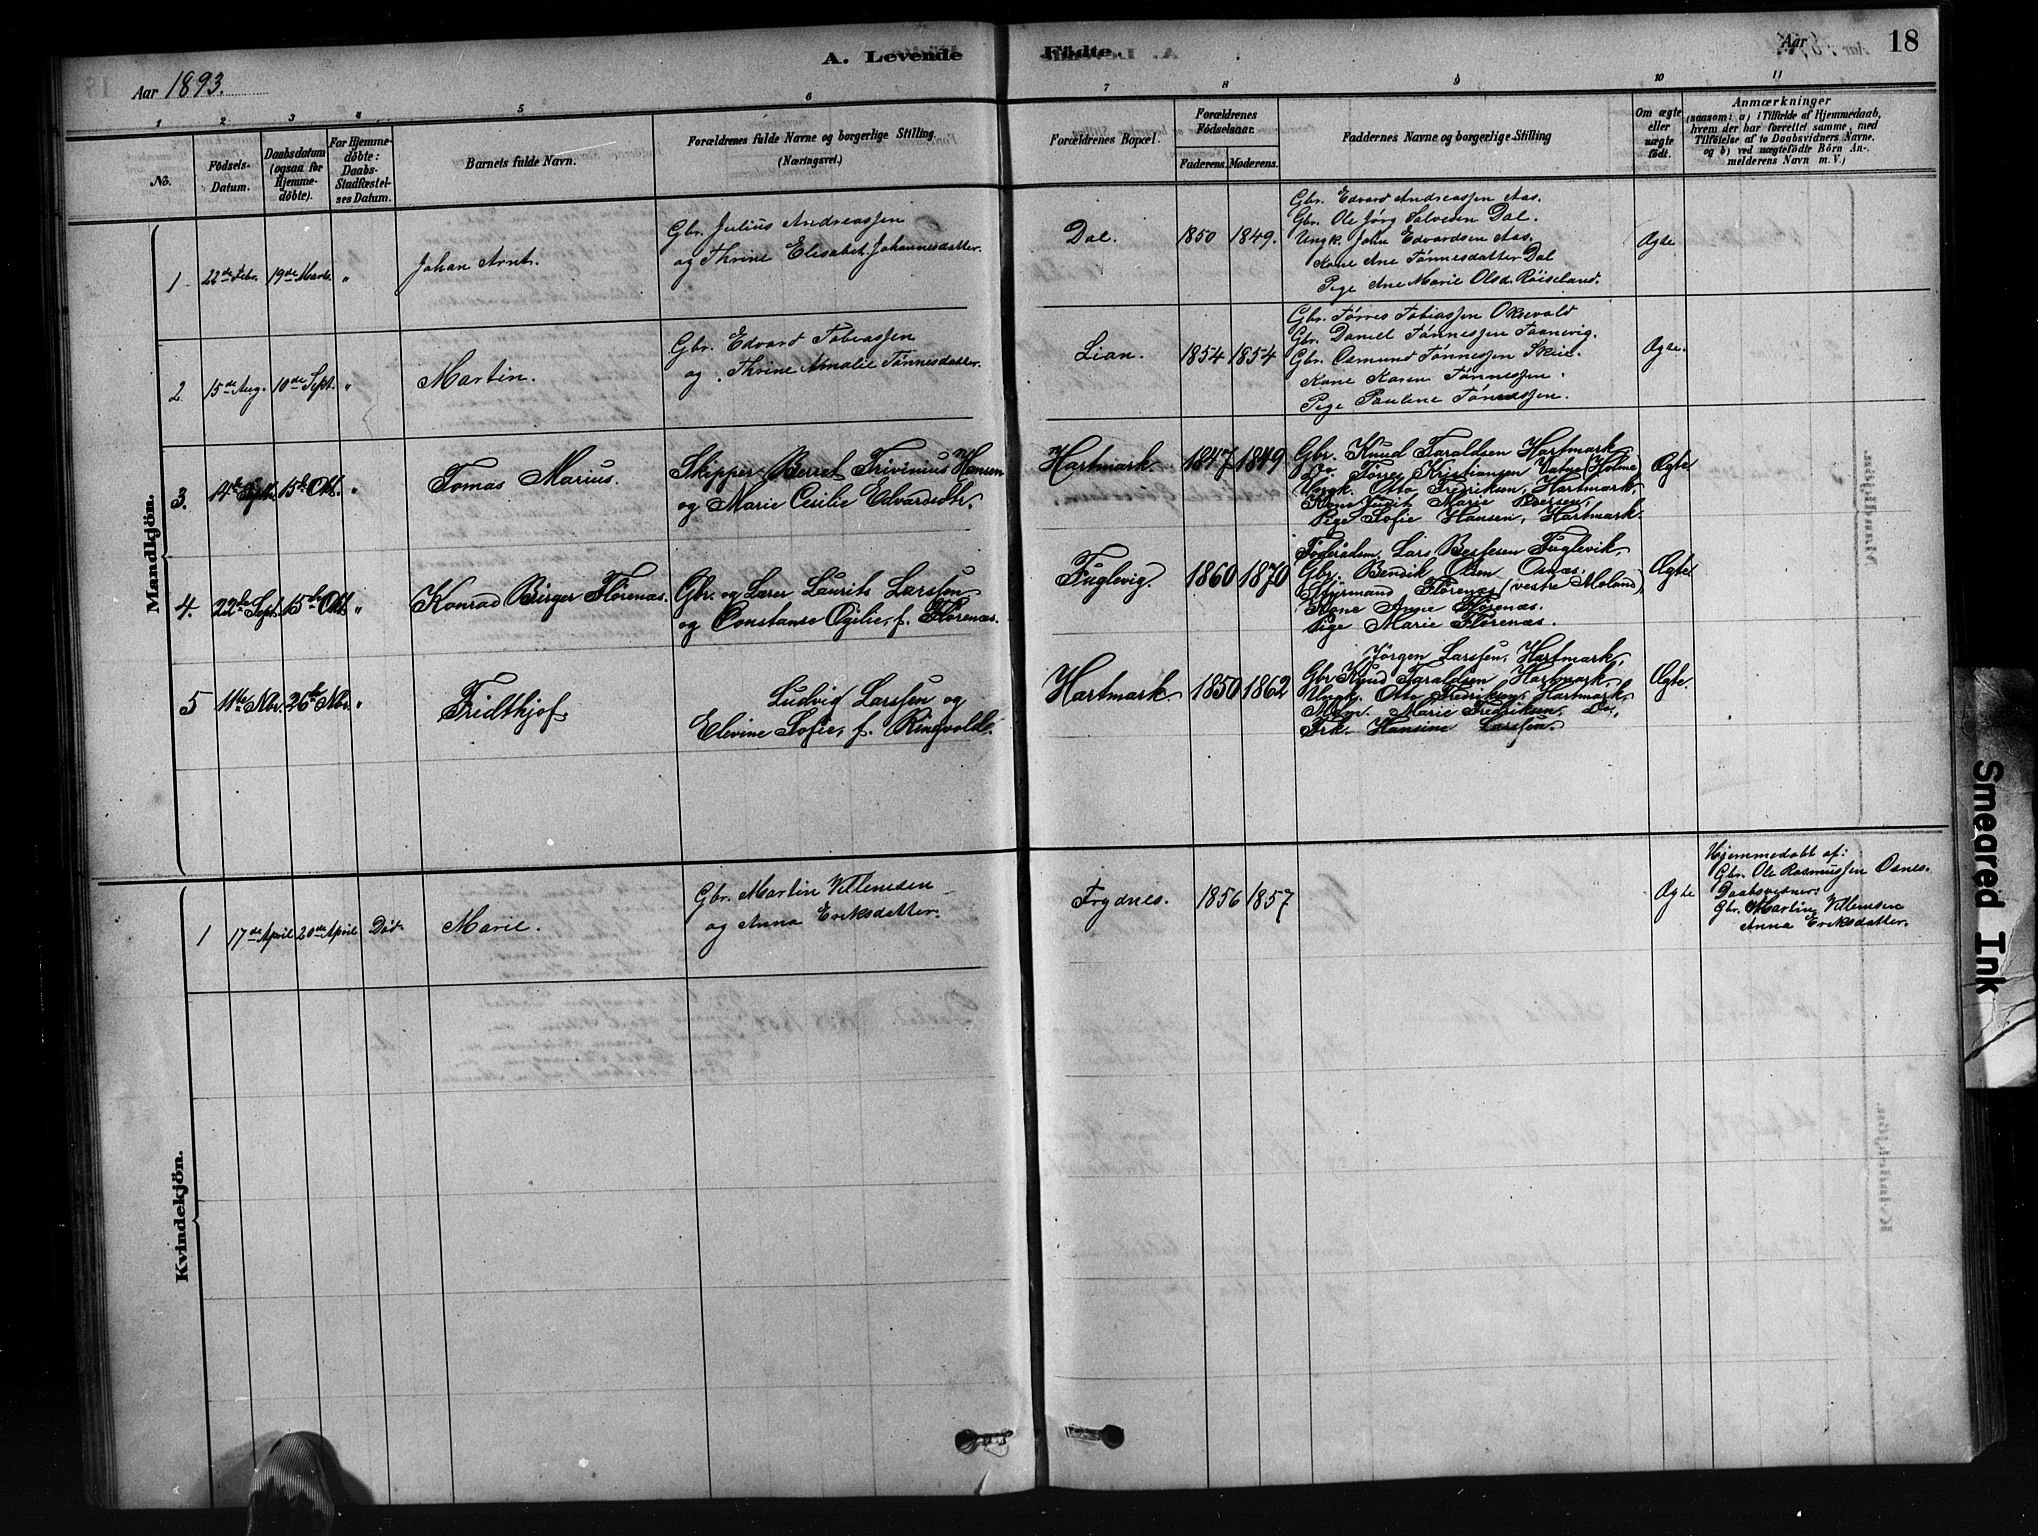 A. Levende
Födte.
Aar 1893.
Aar
18
1
2
3
4
5
6
7
8
9
10
11
No.
Födsels-
Datum.
Daabsdatum
(ogsaa for
Hjemme-
döbte).
For Hjemme-
döbte:
Daabs-
Stadfæstel-
ses Datum.
Barnets fulde Navn.
Forældrenes fulde Navne og borgerlige Stilling.
(Næringsvei.)
Forældrenes Bopæl.
Forældrenes
Födselsaar.
Faderens.
Moderens.
Faddernes Navne og borgerlige Stilling
Om ægte
eller
uægte
födt.
Anmærkninger
(saasom: a) i Tilfælde af Hjemmedaab,
hvem der har forrettet samme, med
Tilföielse af to Daabsvidners Navne.
og b) ved uægtefödte Börn An-
melderens Navn m. V.)
Mandkjön.
1
22de Febr.
19de Marts
"
Johan Arnt.
Gbr. Julius Andreassen
og Thrine Elisabet Johannesdatter.
Dal.
1850
1849.
Gbr. Edvard Andreassen Aas.
Gbr. Ole Jórg Salvesen Dal.
Ungk. John Edvardsen Aas.
Kone Ane Tónnesdatter Dal
Pige Ane Marie Olsd. Róiseland.
Ægte
2
15de Aug.
10de Sept.
"
Martin.
Gbr. Edvard Tobiassen
og Thrine Amalie Tónnesdatter.
Lian.
1854
1854
Gbr. Tórres Tobiassen Oksevald
Gbr. Daniel Tónnessen Taanevig.
Gbr. Osmund Tónnessen Skeie.
Kone Karen Tónnessen.
Pige Pauline Tónnessen.
Ægte.
3.
14de Septbr.
15de Okt.
"
Tomas Marius.
Skipper Berret Trivinius Hansen
og Marie Cesilie Edvardsdtr.
Hartmark.
1847
1849
Gbr. Knud Taraldsen Hartmark
Do. Tórres Kristiansen Vatne (Holme)
Ungk. Otto Fredriksen, Hartmark,
Kone Marie Roersen,
Pige Sofie Hansen, Hartmark.
Ægte
4.
22de Sept.
15de Okt.
"
Konrad Birger Flórenæs.
Gbr. og Lærer Laurits Larssen
og Constanse Ogelie, f. Flórenæs.
Fuglevig.
1860
1870
Lars Bessesen Fuglevik
Gbr. Bendik Olsen Osnæs.
Styrmand Flórenæs (vestre Moland)
Kone Anne Flórenæs.
Pige Marie Flórenæs.
Ægte
5
11te Nbr.
26de Nbr.
"
Fridthjof
Ludvig Larssen og
Elevine Sofie, f. Ringvold.
Hartmark
1850
1862
Jórgen Larssen, Hartmark,
Gbr. Knud Taraldsen Hartmark
Ungk. Otto Fredriksen, Hartmark
Mdm. Marie Fredriksen, Do,
Frk. Hansine Larssen.
Ægte.
Kvindekjön.
1
17de April
20de April
Död
Marie.
Gbr. Martin Villemsen
og Anna Eriksdatter.
Frydnes.
1856
1857
Ægte
Hjemmedøbt af:
Gbr. Ole Rasmussen Osnes.
Daabsvidner:
Gbr. Martin Villemsen
Anna Eriksdatter.
Smeared Ink